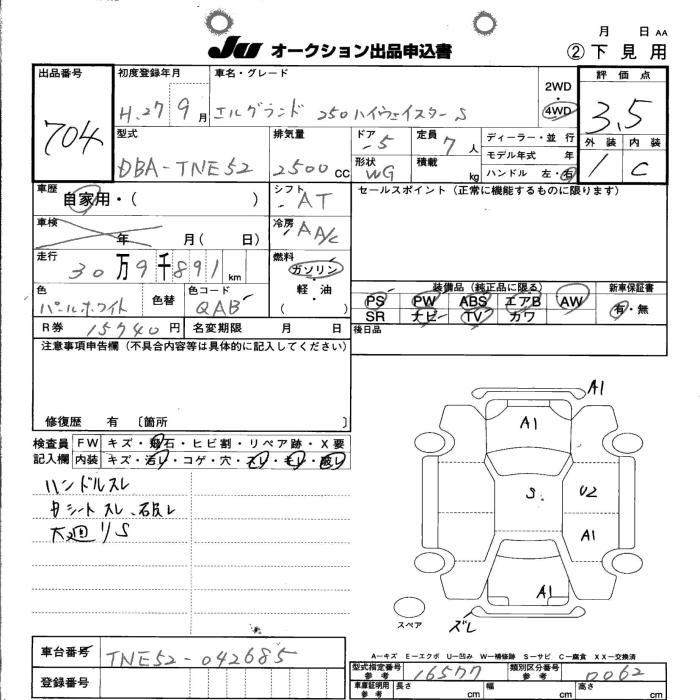 月 日 AA
JU オークション出品申込書 ②下見用
出品番号 704
初度登録年月 H.27 9月
車名・グレード エルグランド 250ハイウェイスターS
2WD・4WD
評価点 3.5
外装 1 内装 C
型式 DBA-TNE52
排気量 2500 CC
ドア 5 定員 7人
形状 WG 積載 kg
ディーラー・並行
モデル年式 年
ハンドル 左・右
車歴 自家用・( )
シフト AT
セールスポイント(正常に機能するものに限ります)
車検 年 月( 日)
冷房 AA/C
走行 30万9千891 km
燃料 ガソリン・軽油( )
色 パールホワイト 色替 色コード QAB
装備品(純正品に限る) 新車保証書
PS PW ABS エアB AW 有・無
SR ナビ TV カワ
R券 15740円 名変期限 月 日
後日品
注意事項申告欄(不具合内容等は具体的に記入してください)
修復歴 有〔箇所 〕
検査員 FW キズ・飛石・ヒビ割・リペア跡・X要
記入欄 内装 キズ・汚レ・コゲ・穴・スレ・モレ・破レ
ハンドルスレ
スレ、
S
A1
A1
S U2
A1
A1
スペア ズレ
A-キズ E-エクボ U-凹み W-補修跡 S-サビ C-腐食 XX-交換済
車台番号 TNE52-042685
登録番号
型式指定番号 参考 16577 類別区分番号 参考 0062
車庫証明用 参考 長さ cm 幅 cm 高さ cm